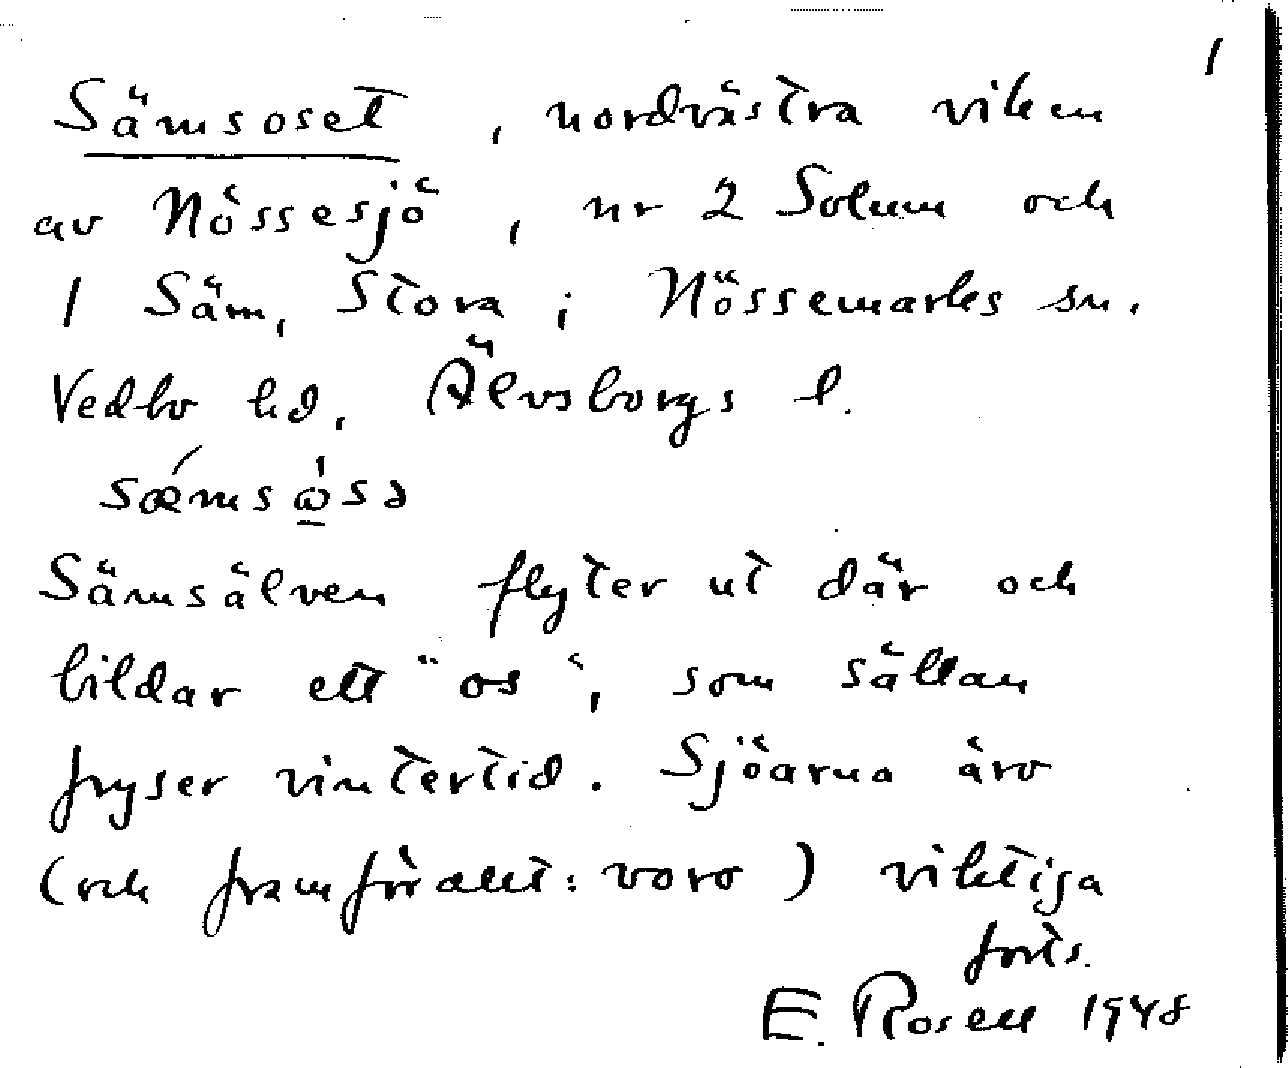 1
Sämsoset, nordvästra viken
av Nössesjö, nr 2 Solum och
1 Säm, Stora i Nössemarks sn.
Vedbo hd, Älvsborgs l.
sǽmsὼ̲sə
Sämsälven flyter ut där och
bildar ett "os", som sällan
fryser vintertid. Sjöarna äro
(och framförallt: voro) viktiga
forts.
E. Rosell 1948